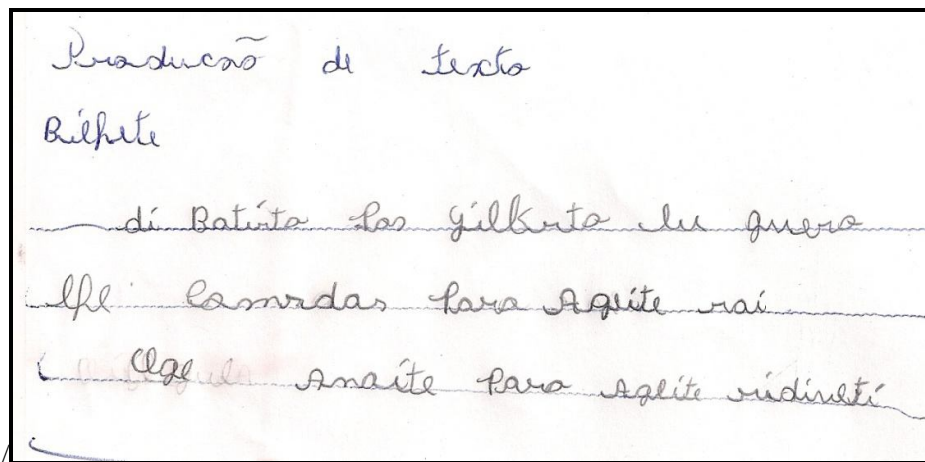 Producão de texto
Bilhete
di Batista Pas Gilberto Eu quero
lhe Comvdar Para Ageite sai
Oge Anoite Para Ageite sidiveti